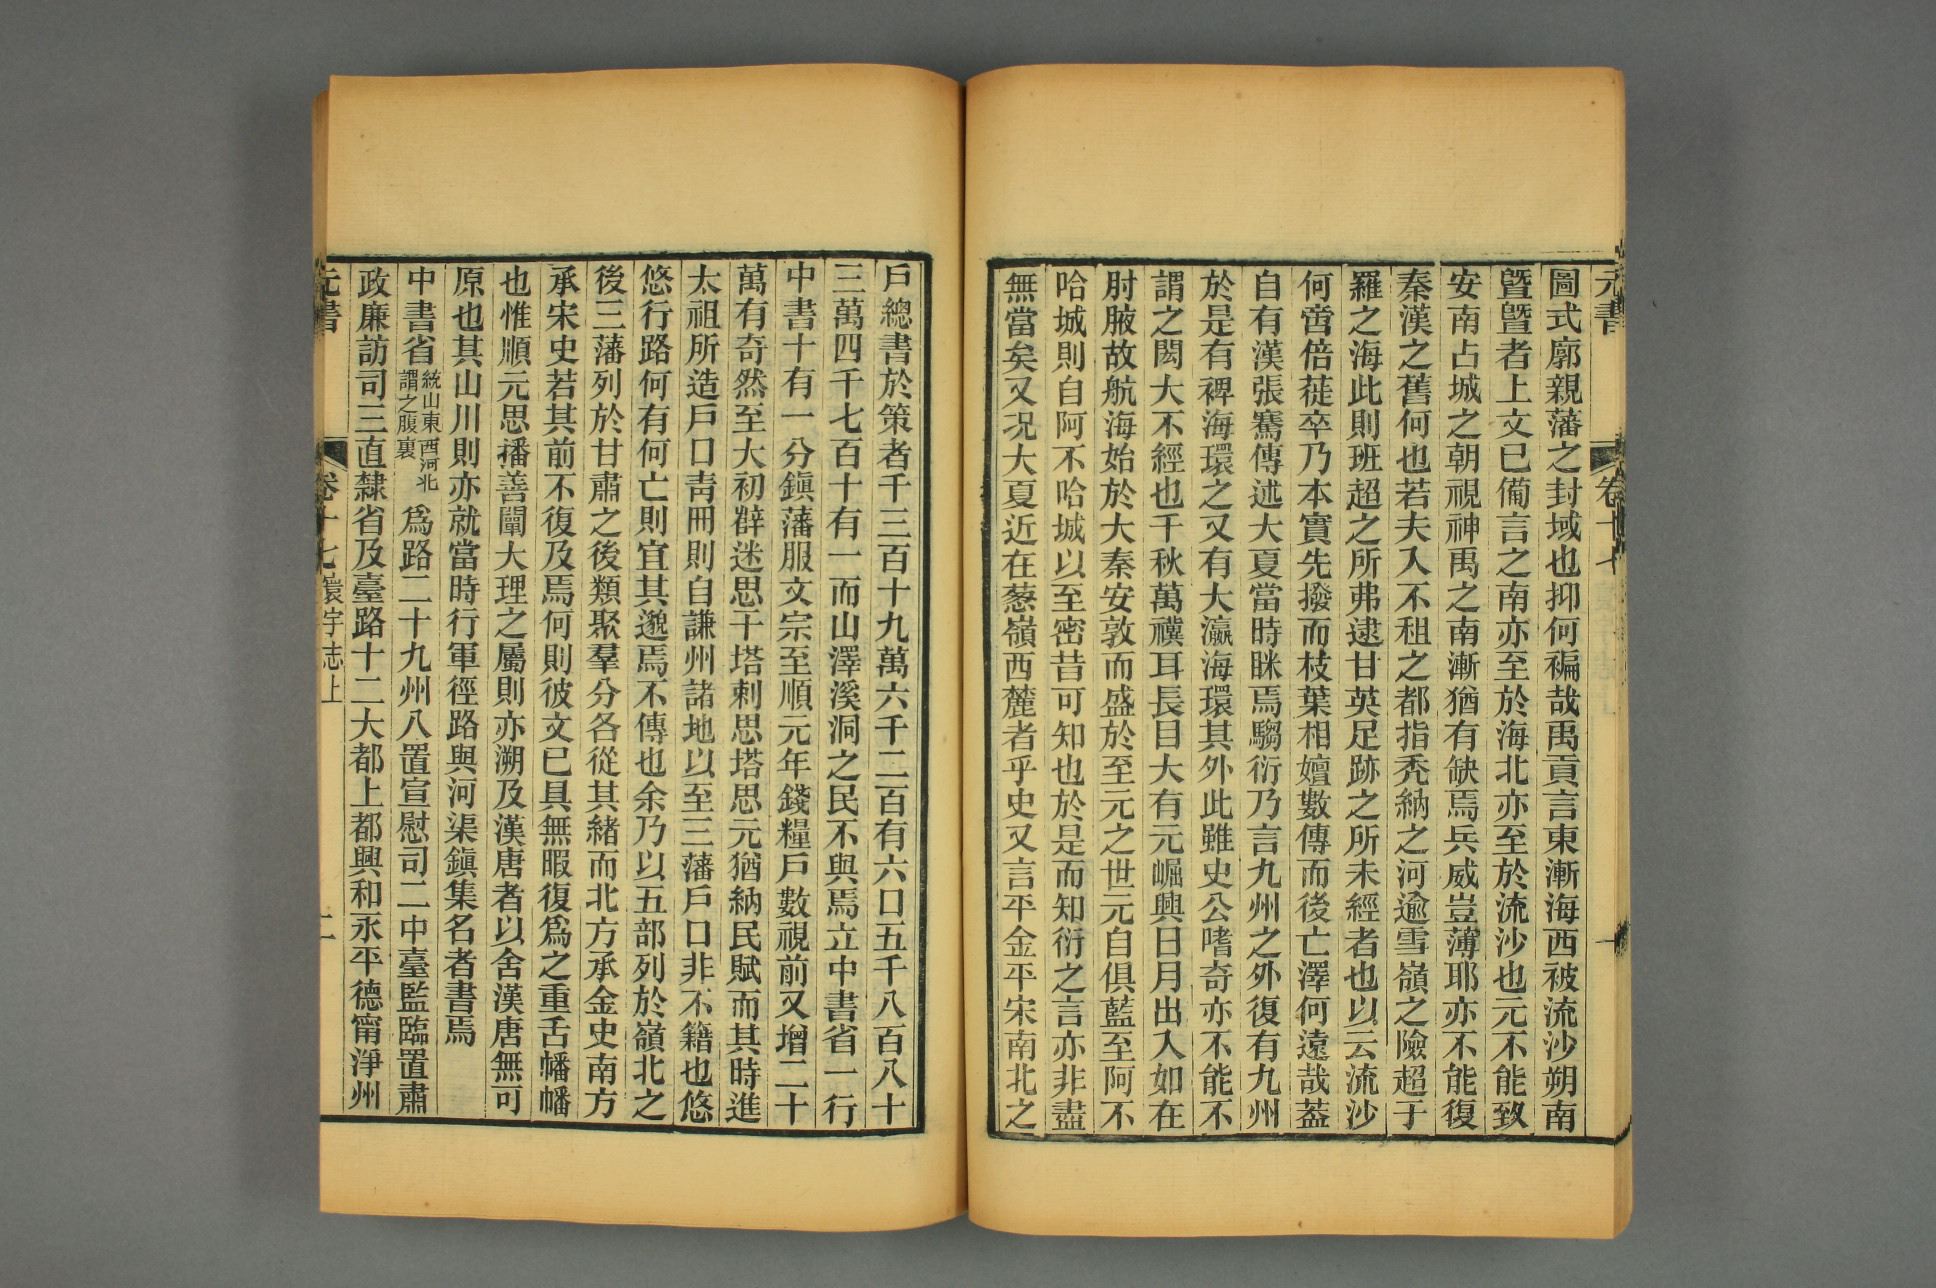 元書
卷十七
一
圖式廓親藩之封域也抑何褊哉禹貢言東漸海西被流沙朔南
曁曁者上文已備言之南亦至於海北亦至於流沙也元不能致
安南占城之朝視神禹之南漸猶有缺焉兵威豈薄耶亦不能復
秦漢之舊何也若夫入不租之都指禿納之河逾雪嶺之險超于
羅之海此則班超之所弗逮甘英足跡之所未經者也以云流沙
何啻倍蓰卒乃本實先撥而枝葉相嬗數傳而後亡澤何遠哉蓋
自有漢張騫傳述大夏當時眯焉騶衍乃言九州之外復有九州
於是有裨海環之又有大瀛海環其外此雖史公嗜奇亦不能不
謂之閎大不經也千秋萬禩耳長目大有元崛興日月出入如在
肘腋故航海始於大秦安敦而盛於至元之世元自俱藍至阿不
哈城則自阿不哈城以至密昔可知也於是而知衍之言亦非盡
無當矣又況大夏近在蔥嶺西麓者乎史又言平金平宋南北之
戶總書於策者千三百十九萬六千二百有六口五千八百八十
三萬四千七百十有一而山澤溪洞之民不與焉立中書省一行
中書十有一分鎭藩服文宗至順元年錢糧戶數視前又增二十
萬有奇然至大初辥迷思干塔剌思塔思元猶納民賦而其時進
太祖所造戶口靑冊則自謙州諸地以至三藩戶口非不籍也悠
悠行路何有何亡則宜其邈焉不傳也余乃以五部列於嶺北之
後三藩列於甘肅之後類聚羣分各從其緒而北方承金史南方
承宋史若其前不復及焉何則彼文已具無暇復爲之重舌幡幡
也惟順元思播善闡大理之屬則亦溯及漢唐者以舍漢唐無可
原也其山川則亦就當時行軍徑路與河渠鎭集名者書焉
中書省統山東西河北謂之腹裏爲路二十九州八置宣慰司二中臺監臨置肅
政廉訪司三直隸省及臺路十二大都上都興和永平德甯淨州
元書
卷十七寰宇志上
二